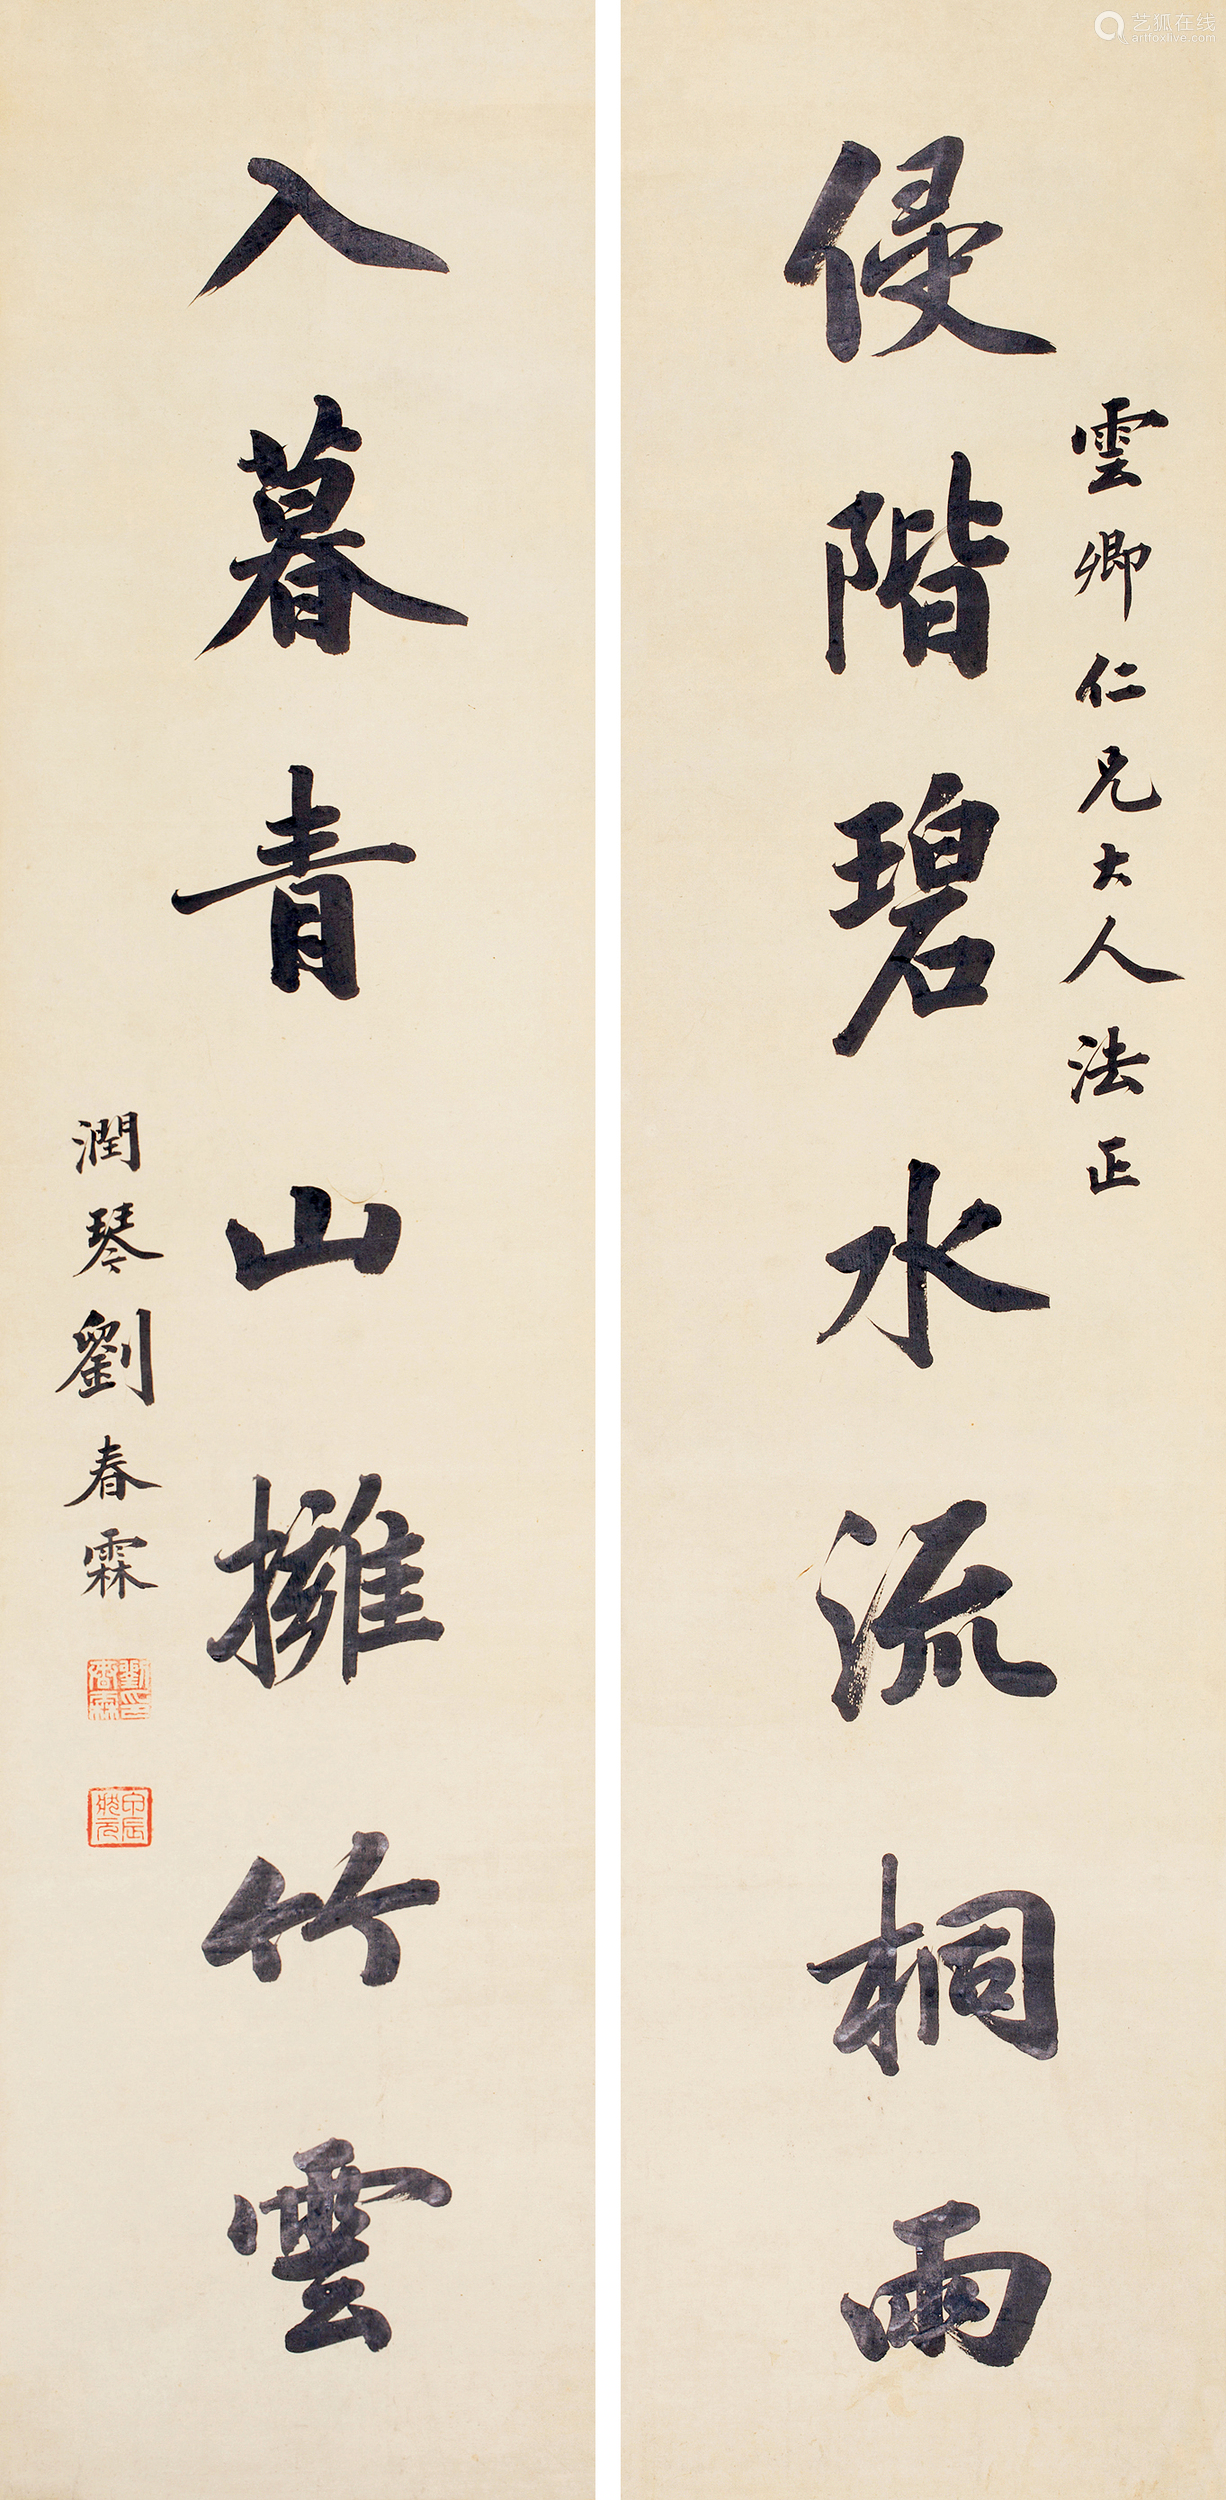 雲卿仁兄大人法正
侵階碧水流桐雨
入暮青山擁竹雲
潤琴劉春霖
劉春霖印
甲辰狀元
艺狐在线
artfoxlive.com